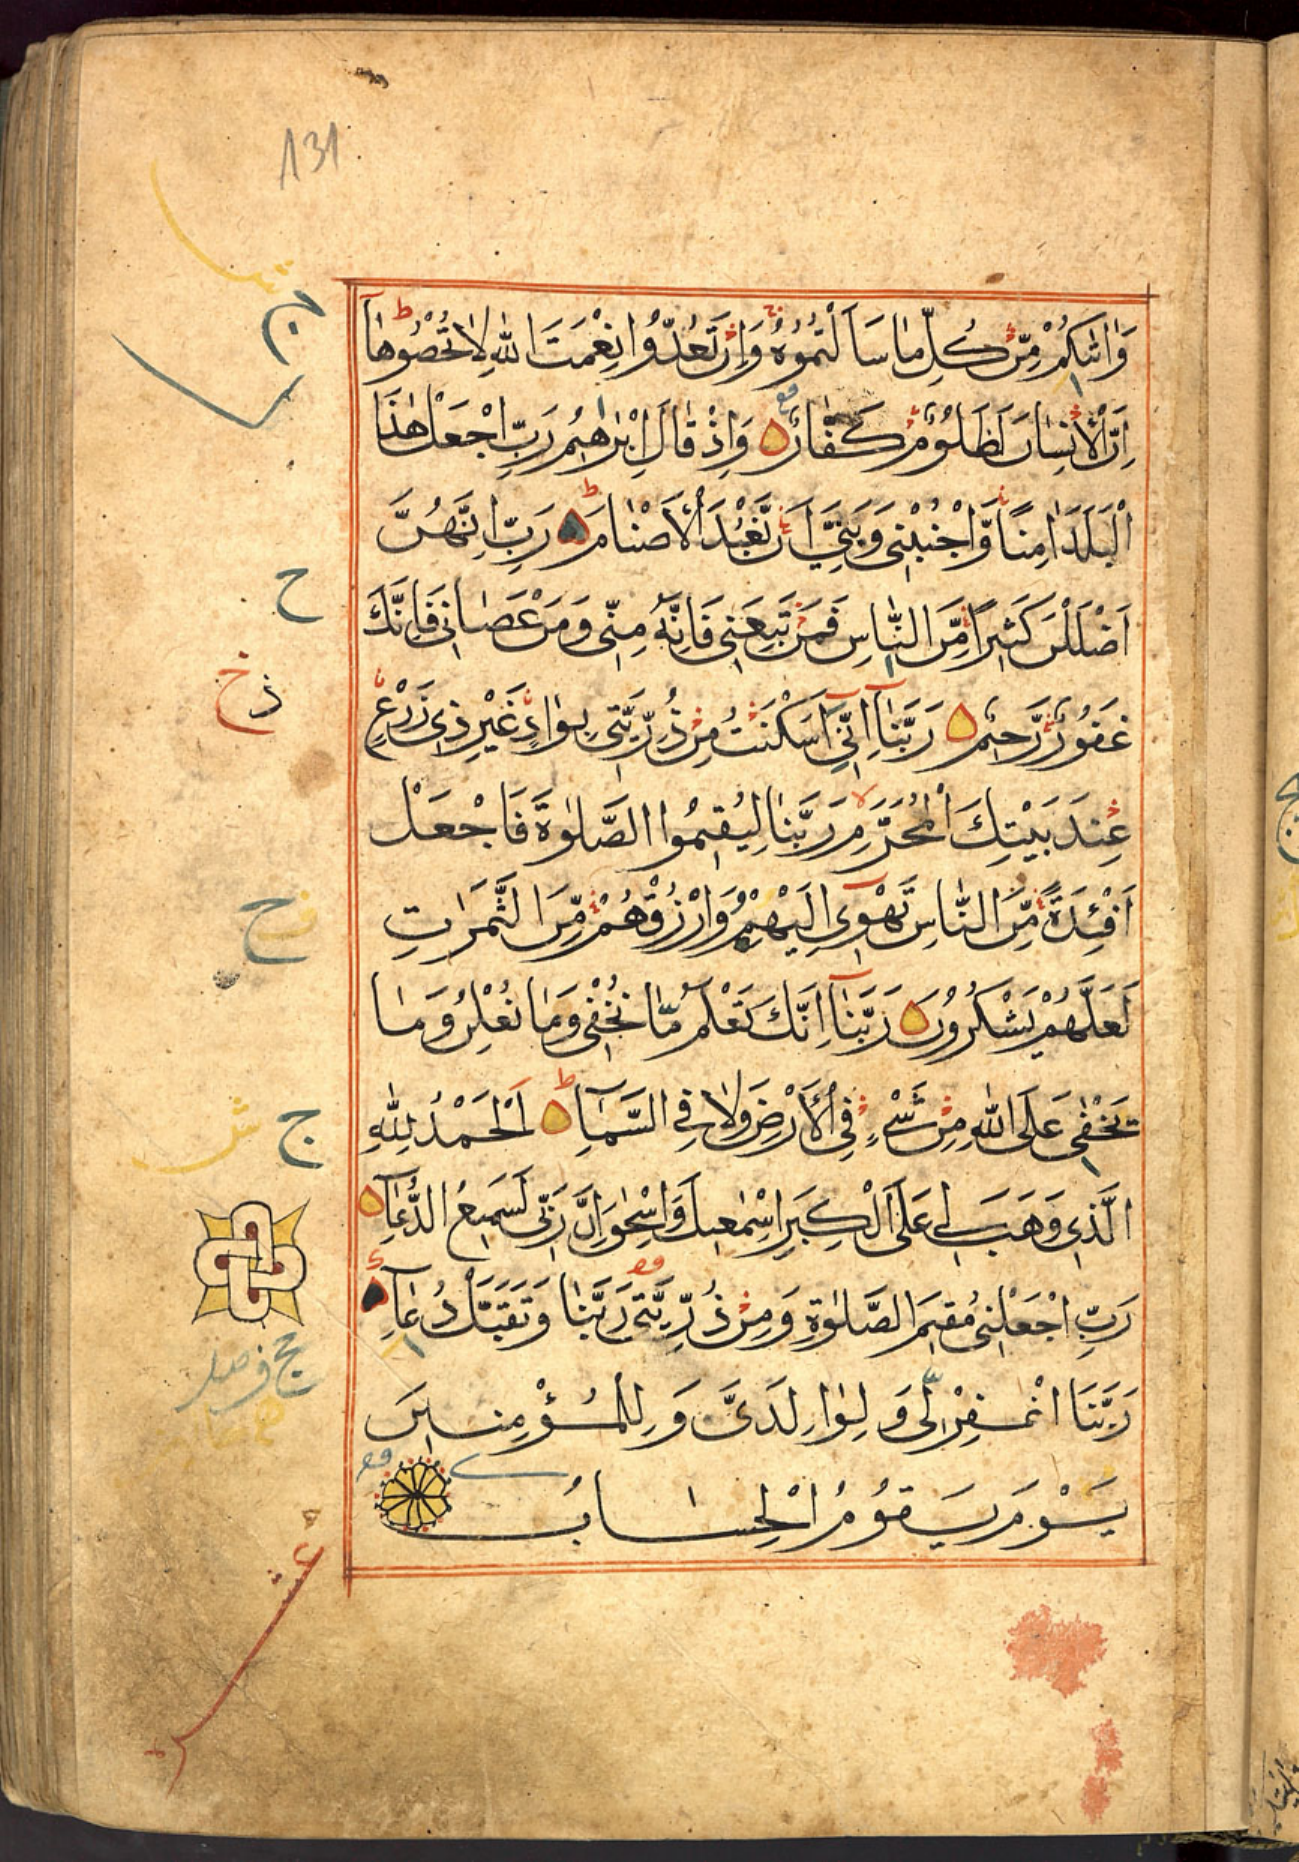 131
وَاٰتٰىكُمْ مِّنْ كُلِّ مَا سَاَلْتُمُوْهُ وَاِنْ تَعُدُّوْا نِعْمَتَ اللّٰهِ لَا تُحْصُوْهَا ط
اِنَّ الْاِنْسَانَ لَظَلُوْمٌ كَفَّارٌ وَاِذْ قَالَ اِبْرٰهِيْمُ رَبِّ اجْعَلْ هٰذَا
الْبَلَدَ اٰمِنًا وَّاجْنُبْنِيْ وَبَنِيَّ اَنْ نَّعْبُدَ الْاَصْنَامَ ط رَبِّ اِنَّهُنَّ
اَضْلَلْنَ كَثِيْرًا مِّنَ النَّاسِ فَمَنْ تَبِعَنِيْ فَاِنَّهٗ مِنِّيْ وَمَنْ عَصَانِيْ فَاِنَّكَ
ح
غَفُوْرٌ رَّحِيْمٌ رَبَّنَا اِنِّيْ اَسْكَنْتُ مِنْ ذُرِّيَّتِيْ بِوَادٍ غَيْرِ ذِيْ زَرْعٍ
عِنْدَ بَيْتِكَ الْمُحَرَّمِ لا رَبَّنَا لِيُقِيْمُوا الصَّلٰوةَ فَاجْعَلْ
اَفْئِدَةً مِّنَ النَّاسِ تَهْوِيْ اِلَيْهِمْ وَارْزُقْهُمْ مِّنَ الثَّمَرٰتِ
لَعَلَّهُمْ يَشْكُرُوْنَ رَبَّنَا اِنَّكَ تَعْلَمُ مَا نُخْفِيْ وَمَا نُعْلِنُ وَمَا
يَخْفٰى عَلَى اللّٰهِ مِنْ شَيْءٍ فِي الْاَرْضِ وَلَا فِي السَّمَاءِ ط اَلْحَمْدُ لِلّٰهِ
ج
الَّذِيْ وَهَبَ لِيْ عَلَى الْكِبَرِ اِسْمٰعِيْلَ وَاِسْحٰقَ اِنَّ رَبِّيْ لَسَمِيْعُ الدُّعَاءِ
رَبِّ اجْعَلْنِيْ مُقِيْمَ الصَّلٰوةِ وَمِنْ ذُرِّيَّتِيْ رَبَّنَا وَتَقَبَّلْ دُعَاءِ
رَبَّنَا اغْفِرْ لِيْ وَلِوَالِدَيَّ وَلِلْمُؤْمِنِيْنَ
يَوْمَ يَقُوْمُ الْحِسَابُ
عشر